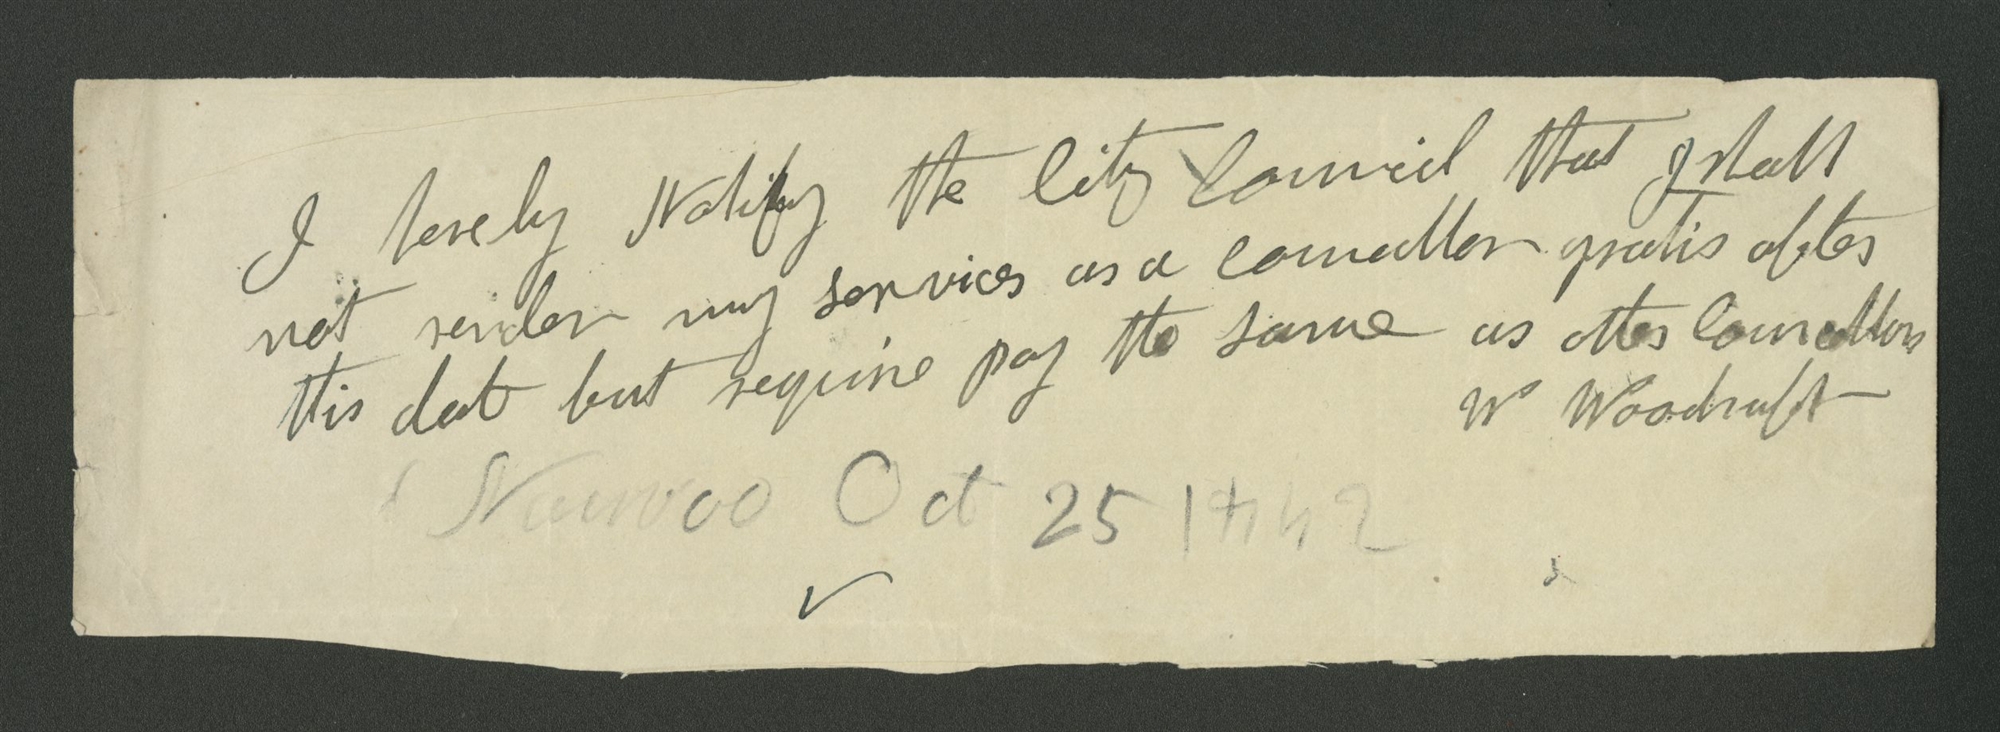 I herely Notify the City Council that I shall
not render my services as a Councellor gratis after
this date but require pay the same as other Councellors
W Woodruff
Nauvoo Oct 25 1842